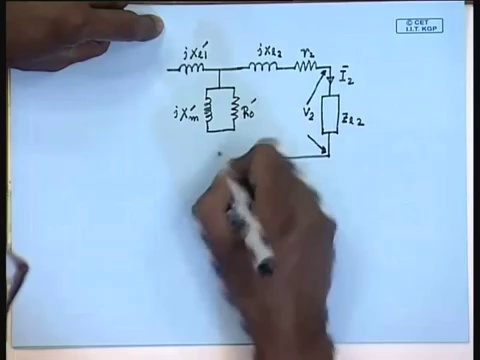 © CET
I.I.T. KGP
jxl1' jxl2 r2
I̅2
jxm' R0' V2 Zl2